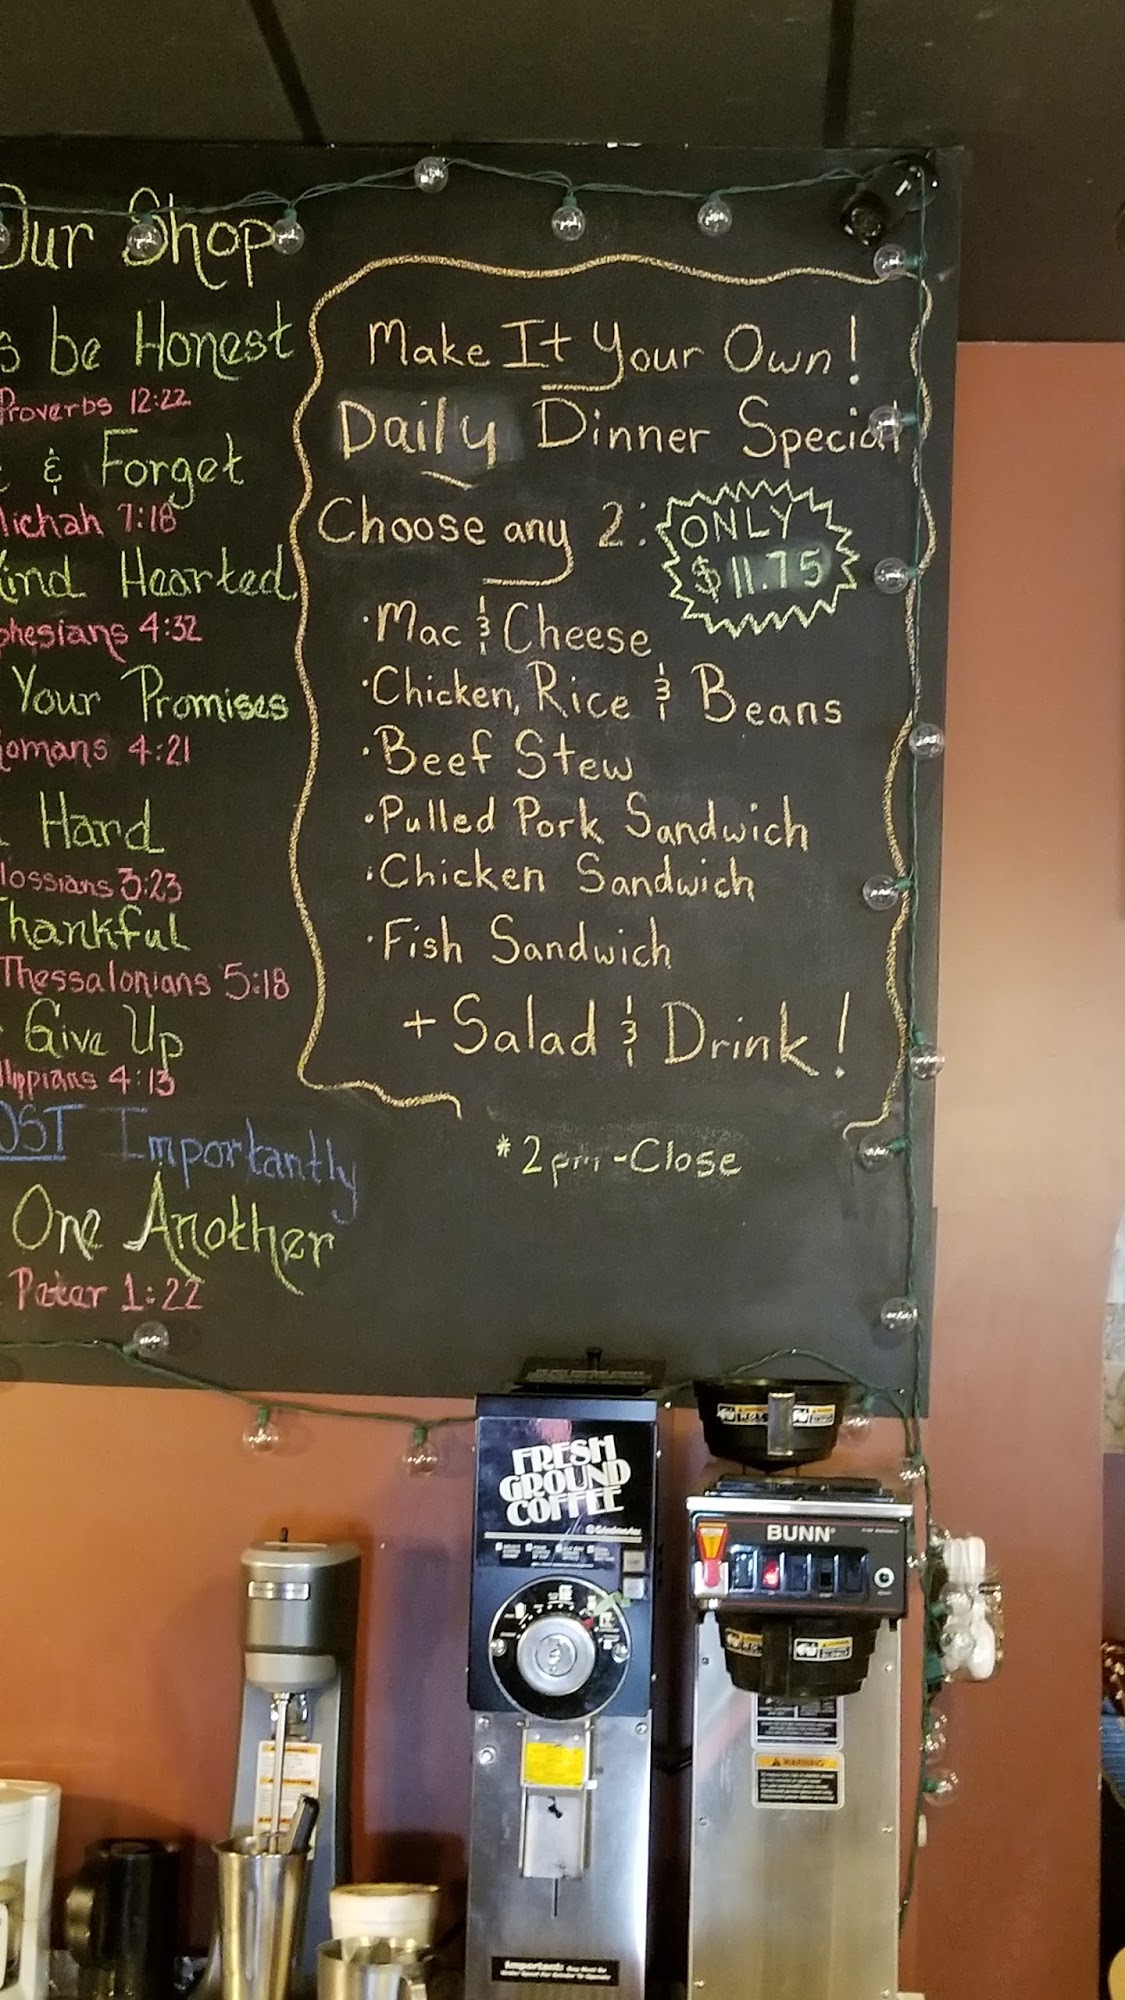 Our Shop
be Honest
Proverbs 12:22
& Forget
Michah 7:18
Kind Hearted
Ephesians 4:32
Your Promises
Romans 4:21
Hard
Colossians 3:23
Thankful
Thessalonians 5:18
Give Up
Phillippians 4:13
MOST Importantly
One Another
Peter 1:22
Make It Your Own!
Daily Dinner Special
Choose any 2:
ONLY
$11.75
·Mac & Cheese
·Chicken, Rice & Beans
·Beef Stew
·Pulled Pork Sandwich
·Chicken Sandwich
·Fish Sandwich
+ Salad & Drink!
*2pm-Close
FRESH
GROUND
COFFEE
BUNN
WARNING
Important: